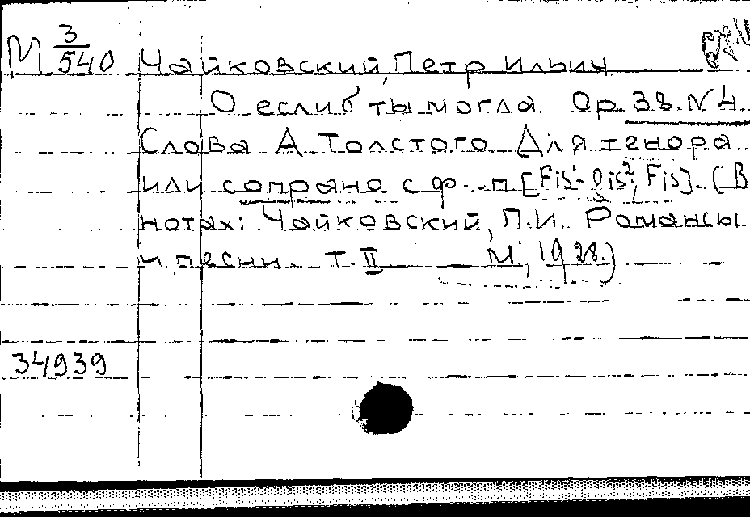 М 3/540 Чайковский, Петр Ильич
О если б ты могла Ор. 38. N 4.
Слова А Толстого Для тенора
или сопрано с ф.-п [Fis¹-gis², Fis]. (В
нотах: Чайковский, П.И. Романсы
и песни. Т. II М., 1928.)
34939